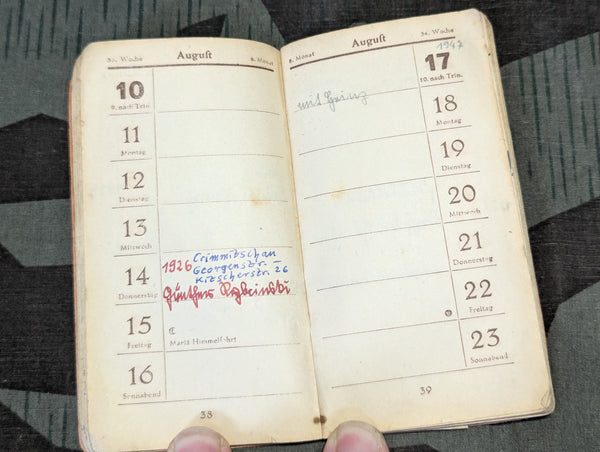 33. Woche August 8. Monat
10
9. nach Trin.
11
Montag
12
Dienstag
13
Mittwoch
1926 Crimmitschau
Georgenstr. –
Kitscherstr. 26
14
Donnerstag Günther Rybcinski
15
Freitag
Mariä Himmelfahrt
16
Sonnabend
38
8. Monat August 34. Woche
1947
17
10. nach Trin.
mit Heinz
18
Montag
19
Dienstag
20
Mittwoch
21
Donnerstag
22
Freitag
23
Sonnabend
39